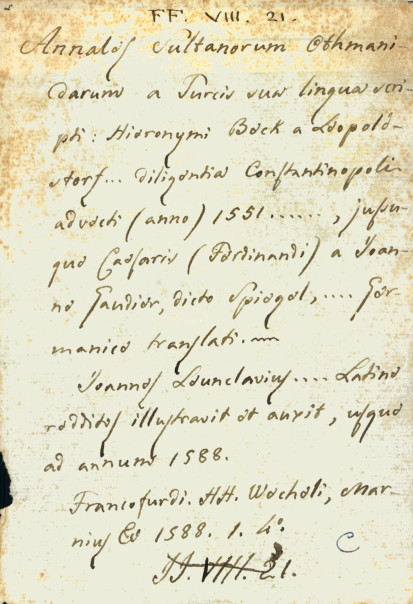 FF. VIII. 21.
Annales Sultanorum Othmani-
darum a Turcis sua lingua scri-
pti: Hieronymi Beck a Leopol-
storf... diligentia Constantinopoli
advecti (anno) 1551......, jussu-
que Caesaris (Ferdinandi) a Joan-
ne Gaudier, dicto Spiegel,.... Ger-
manice translati.
Joannes Leunclavius.... Latine
redditos illustravit et auxit, usque
ad annum 1588.
Francofurdi. HH. Wecheli, Mar-
nius &c 1588. 1. 4°.
C
JJ. VIII. 21.